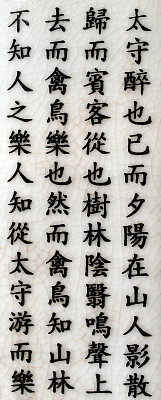 太守醉也已而夕陽在山人影散
歸而賓客從也樹林陰翳鳴聲上
去而禽鳥樂也然而禽鳥知山林
不知人之樂人知從太守游而樂